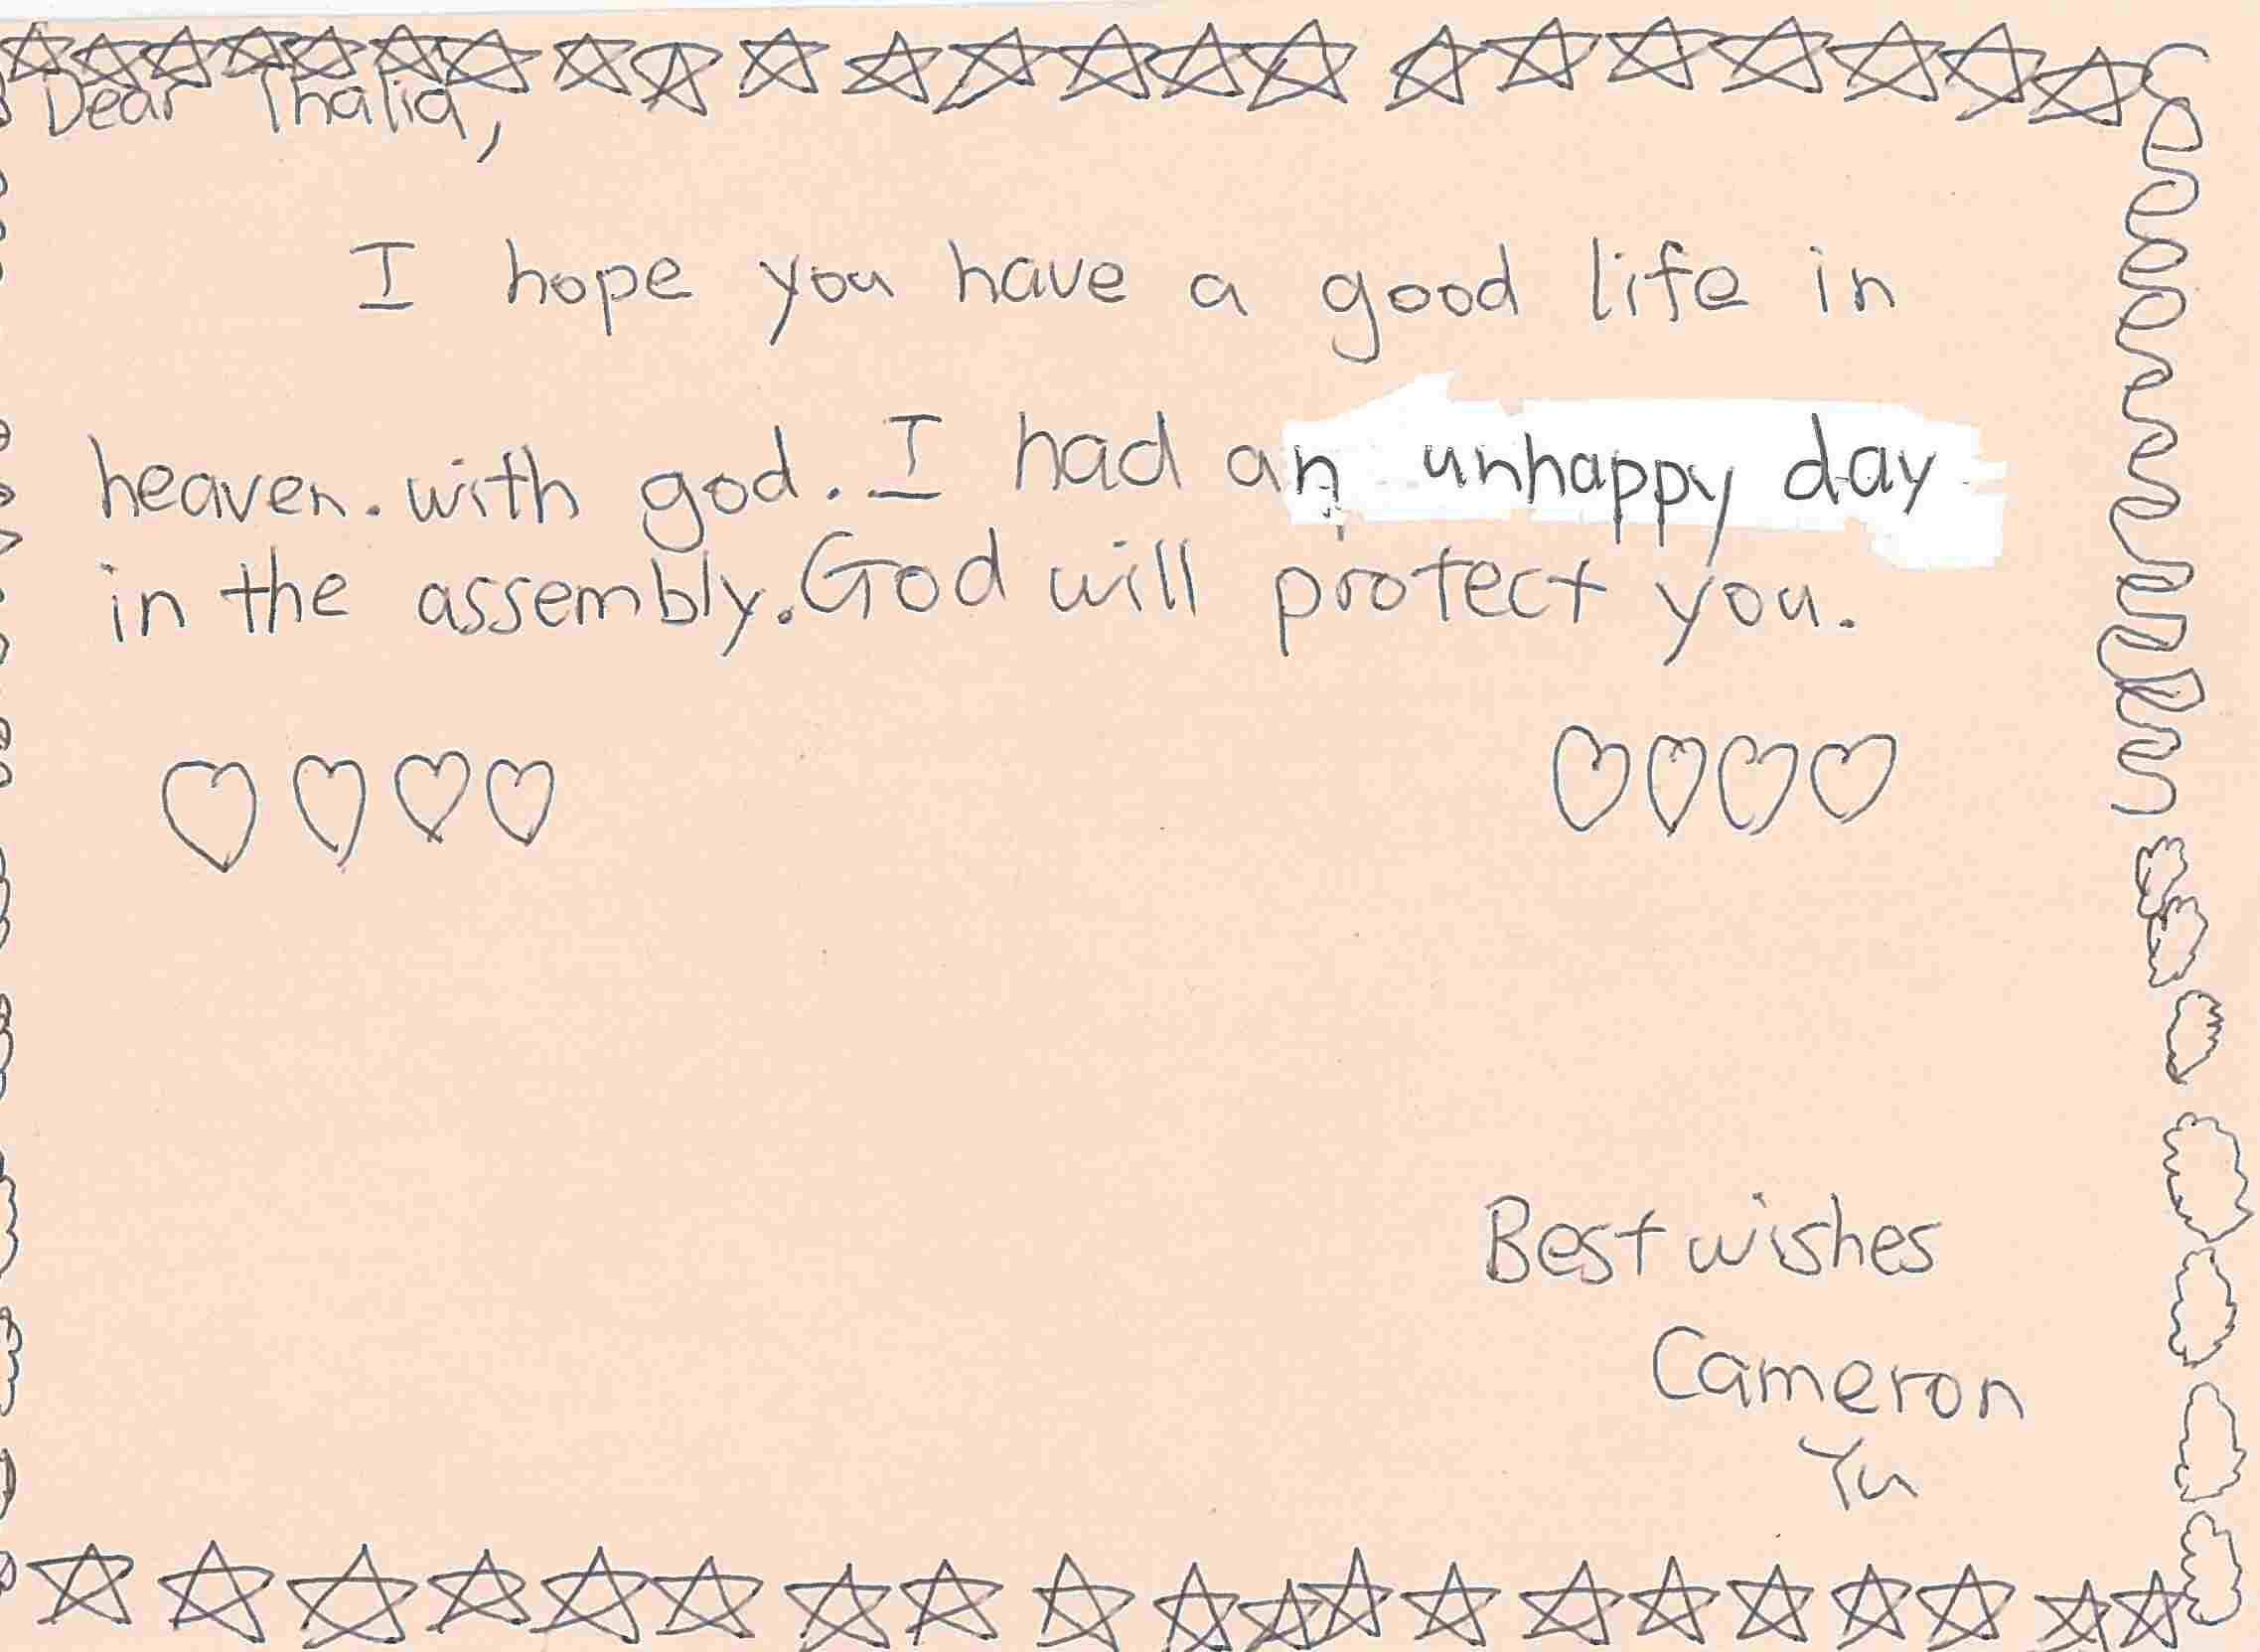 Dear Thalia,
I hope you have a good life in
heaven. with god. I had an unhappy day
in the assembly. God will protect you.
Best wishes
Cameron
Yu